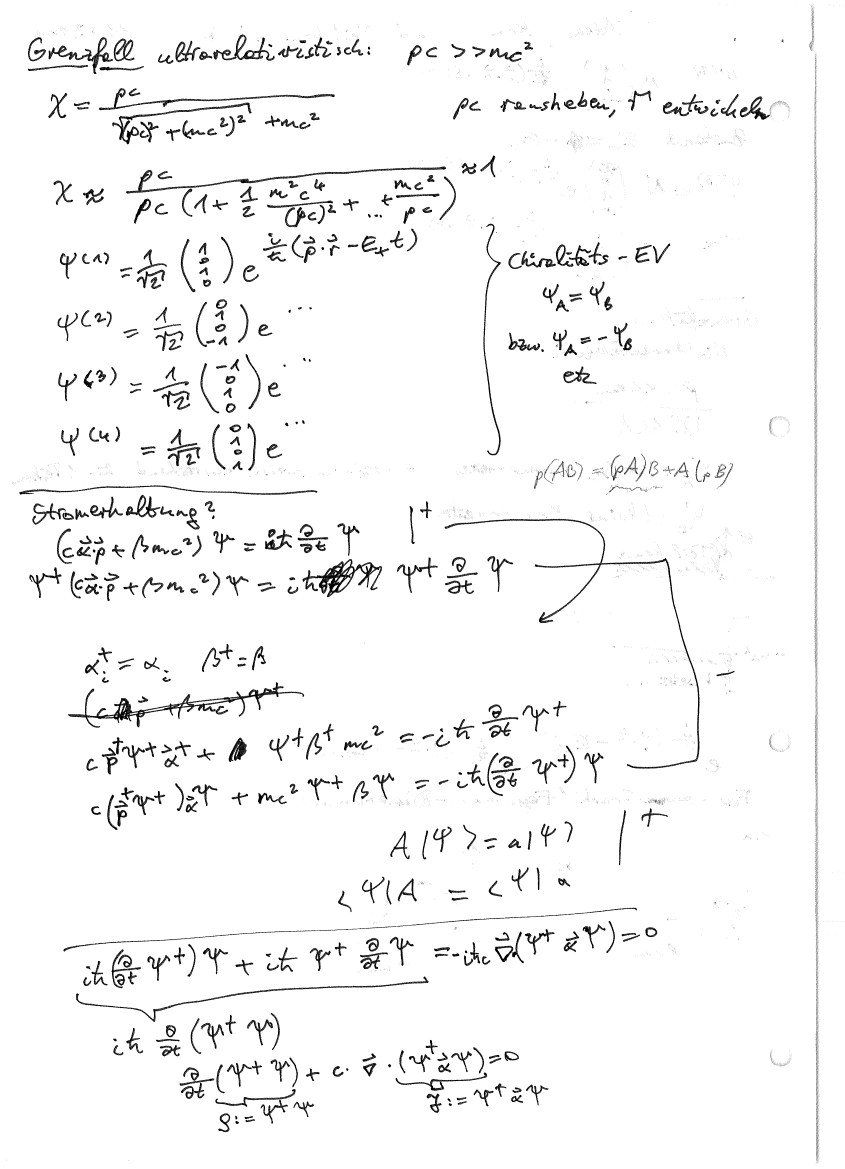 Grenzfall ultrarelativistisch: pc >> mc²
χ = pc / (√((pc)² + (mc²)²) + mc²) pc rausheben, √ entwickeln
χ ≈ pc / (pc (1 + 1/2 m²c⁴/(pc)² + ... + mc²/pc)) ≈ 1
ψ(1) = 1/√2 (1 0 1 0) e^{i/ħ (p⃗·r⃗ - E₊t)}
ψ(2) = 1/√2 (0 1 0 -1) e^{...}
ψ(3) = 1/√2 (-1 0 1 0) e^{...}
ψ(4) = 1/√2 (0 1 0 1) e^{...}
Chiralitäts-EV
ψ_A = ψ_B
bzw. ψ_A = -ψ_B
etz
p(AB) = (pA)B + A(pB)
Stromerhaltung?
(cα⃗·p⃗ + βmc²) ψ = iħ ∂/∂t ψ |⁺
ψ⁺ (cα⃗·p⃗ + βmc²) ψ = iħ ψ⁺ ∂/∂t ψ
α_i⁺ = α_i β⁺ = β
-
c p⃗⁺ψ⁺α⃗⁺ + ψ⁺β⁺ mc² = -iħ ∂/∂t ψ⁺
c (p⃗⁺ψ⁺) α⃗ψ + mc² ψ⁺βψ = -iħ (∂/∂t ψ⁺) ψ
A|ψ> = a|ψ> |⁺
<ψ|A = <ψ| a
iħ (∂/∂t ψ⁺) ψ + iħ ψ⁺ ∂/∂t ψ = -iħc ∇⃗·(ψ⁺ α⃗ ψ) = 0
iħ ∂/∂t (ψ⁺ ψ)
∂/∂t (ψ⁺ ψ) + c · ∇⃗ · (ψ⁺ α⃗ ψ) = 0
ρ := ψ⁺ ψ j⃗ := ψ⁺ α⃗ ψ